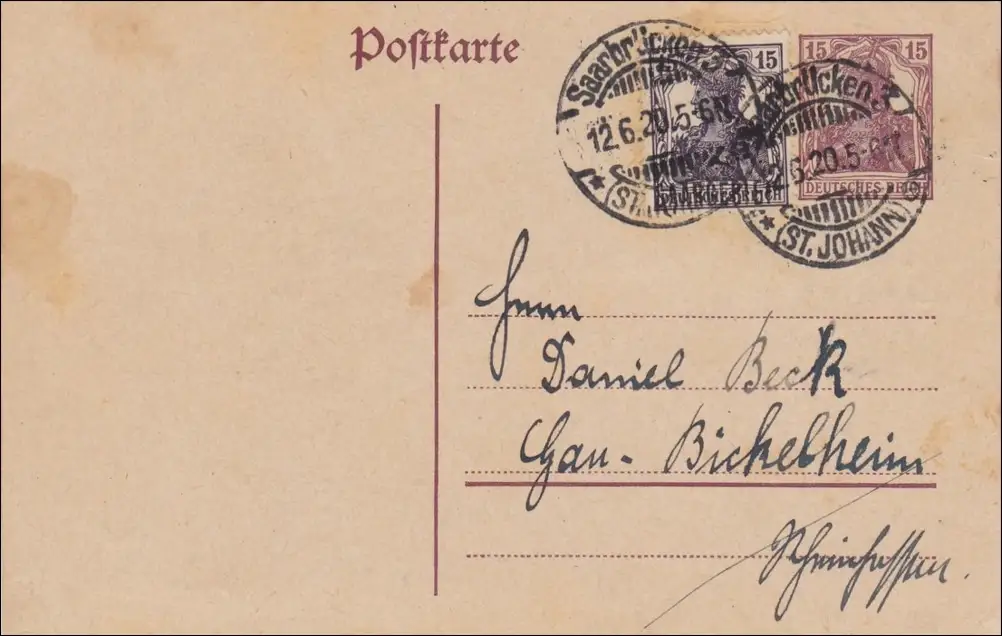 Postkarte
Saarbrücken 3
12.6.20.5-6N
*(ST.
15
SAARGEBIET
15 15
DEUTSCHES REICH
Saarbrücken 3
12.6.20.5-6N
*(ST. JOHANN)
Herrn
Daniel Beck
Gau-Bickelheim
Rheinhessen.